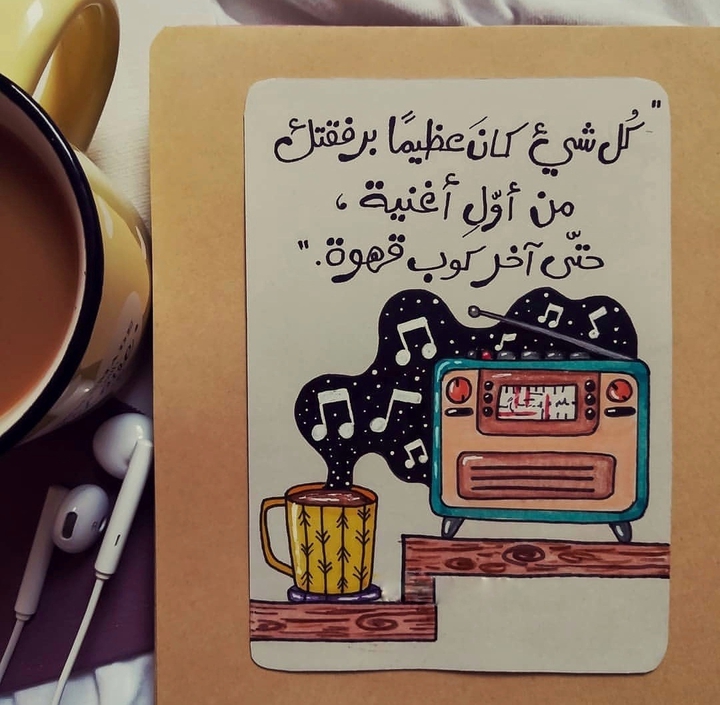 "كُل شيئ كانَ عظيمًا برفقتك
من أوّلِ أغنية ،
حتّى آخر كوب قهوة."